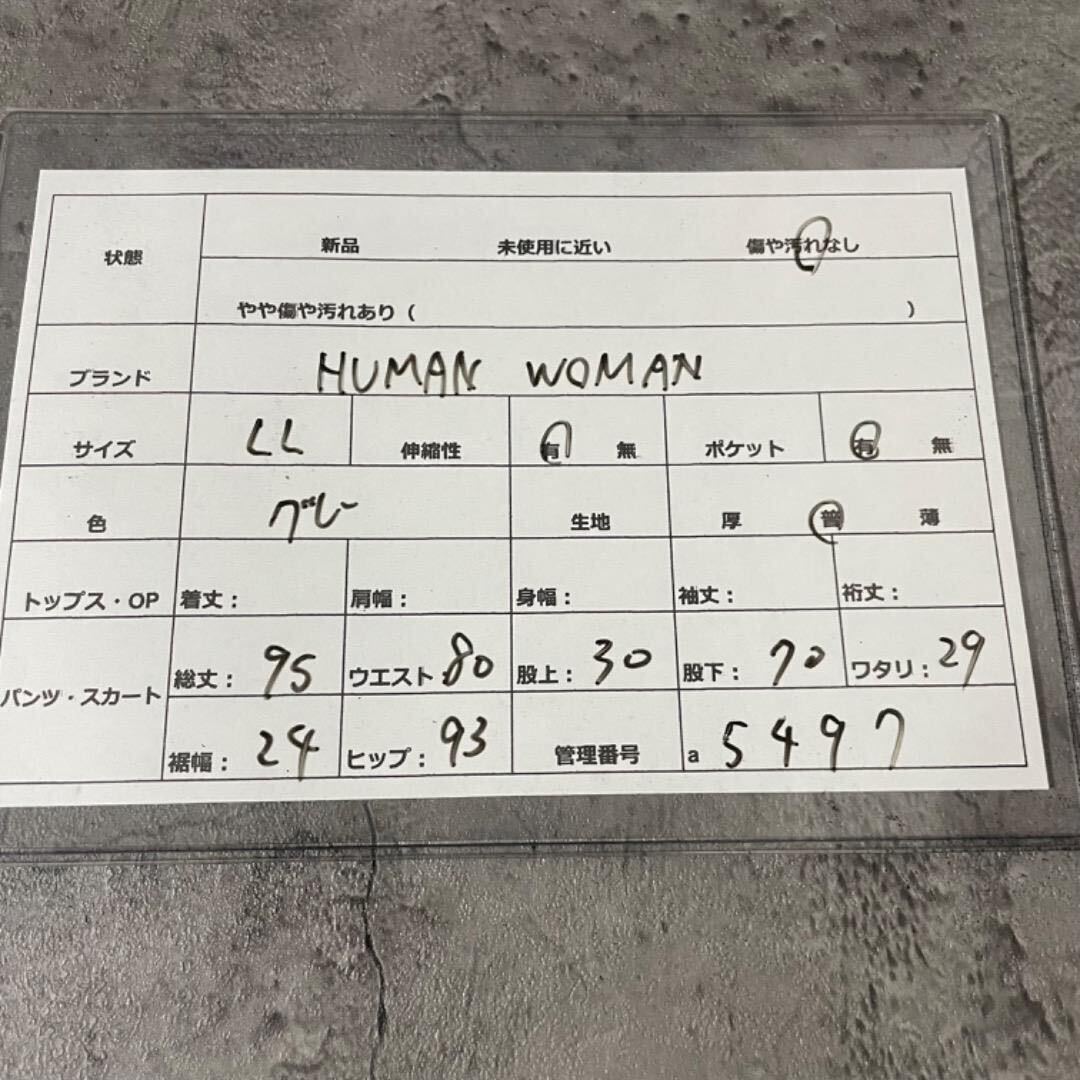 状態 新品 未使用に近い 傷や汚れなし
やや傷や汚れあり( )
ブランド HUMAN WOMAN
サイズ LL 伸縮性 有 無 ポケット 有 無
色 グレー 生地 厚 普 薄
トップス・OP 着丈: 肩幅: 身幅: 袖丈: 裄丈:
パンツ・スカート 総丈: 95 ウエスト: 80 股上: 30 股下: 70 ワタリ: 29
裾幅: 24 ヒップ: 93 管理番号 a 5497